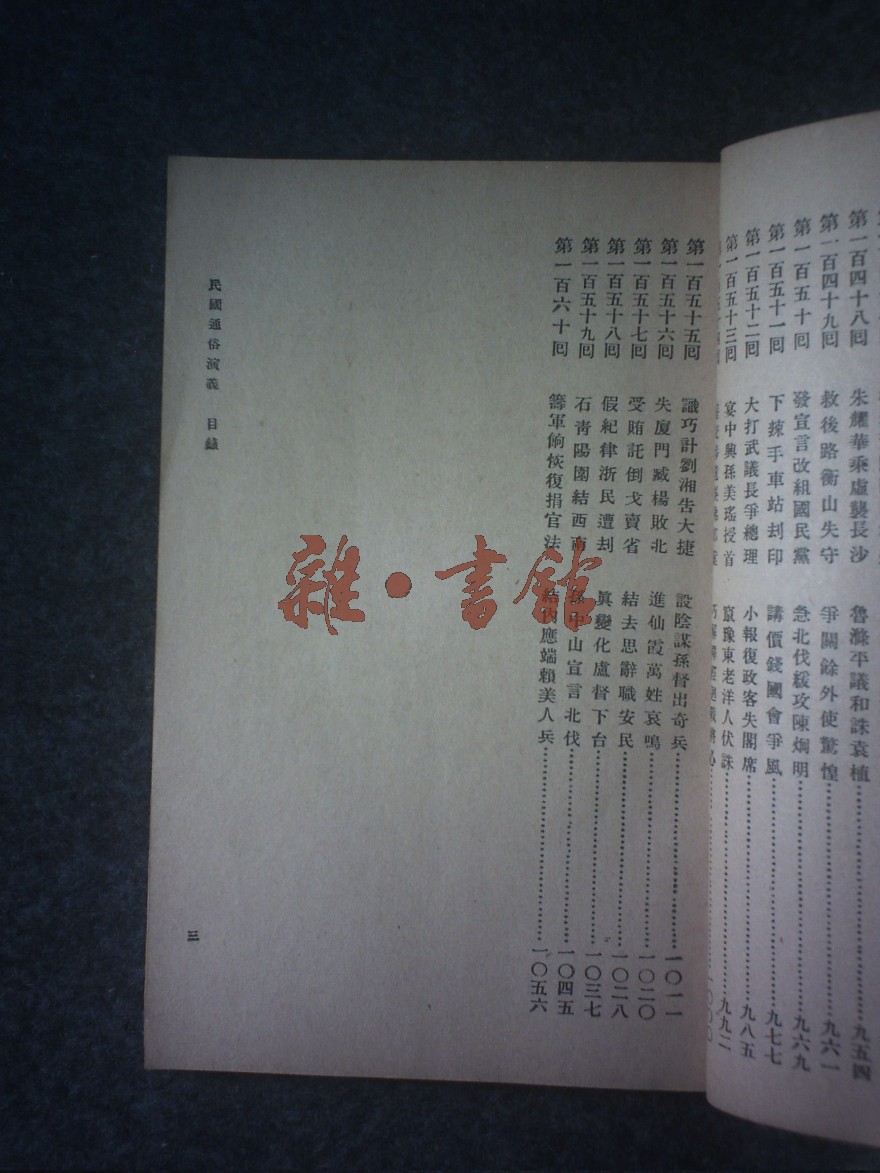 第一百四十八囘 朱耀華乘虛襲長沙 魯滌平議和誅袁植 九五四
第一百四十九囘 救後路衡山失守 爭關餘外使驚惶 九六一
第一百五十囘 發宣言改組國民黨 急北伐緩攻陳烱明 九六九
第一百五十一囘 下辣手車站刦印 講價錢國會爭風 九七七
第一百五十二囘 大打武議長爭總理 小報復政客失閣席 九八五
第一百五十三囘 宴中興孫美瑤授首 竄豫東老洋人伏誅 九九二
第一百五十五囘 識巧計劉湘吿大捷 設陰謀孫督出奇兵 一〇一一
第一百五十六囘 失廈門臧楊敗北 進仙霞萬姓哀鳴 一〇二〇
第一百五十七囘 受賄託倒戈賣省 結去思辭職安民 一〇二八
第一百五十八囘 假紀律浙民遭刦 眞變化盧督下台 一〇三七
第一百五十九囘 石靑陽團結西南 孫中山宣言北伐 一〇四五
第一百六十囘 籌軍餉恢復捐官法 結內應端賴美人兵 一〇五六
民國通俗演義 目錄
三
雜·書館